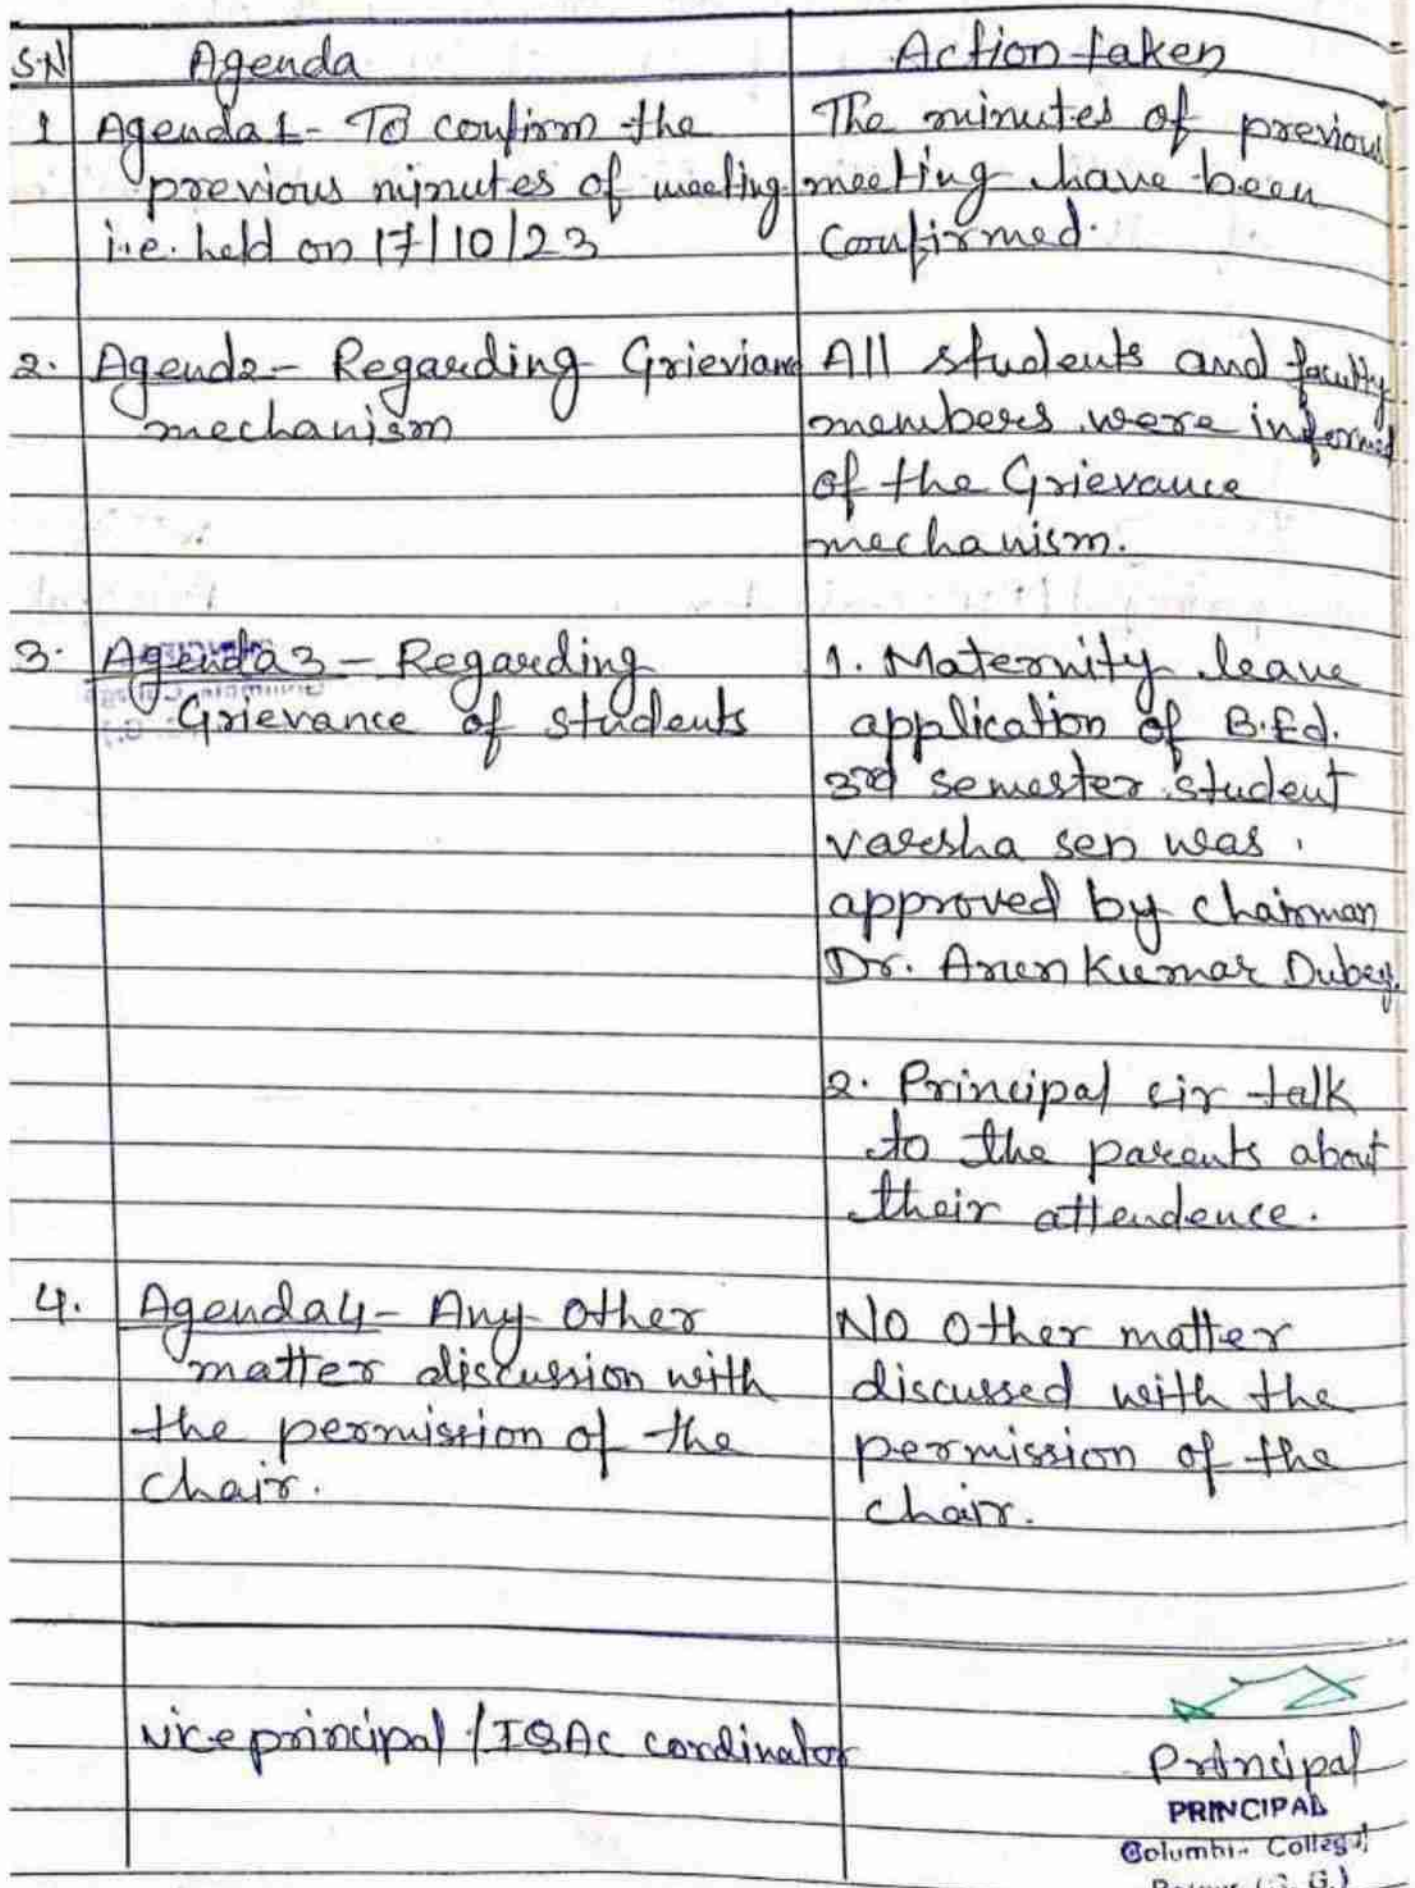 S.N Agenda Action taken
1 Agenda 1- To confirm the
previous minutes of meeting
i.e. held on 17/10/23
The minutes of previous
meeting have been
Confirmed.
2. Agend2- Regarding Grievianc
mechanism
All students and faculty
members were informed
of the Grievance
mechanism.
3. Agenda 3 - Regarding
Grievance of students
1. Maternity leave
application of B.Ed.
3rd semester student
varsha sen was
approved by chairman
Dr. Arun Kumar Dubey.
2. Principal sir talk
to the parents about
their attendence.
4. Agenda 4- Any other
matter discussion with
the permission of the
chair.
No other matter
discussed with the
permission of the
chair.
Vice principal / IQAC cordinator
Principal
PRINCIPAL
Columbia College